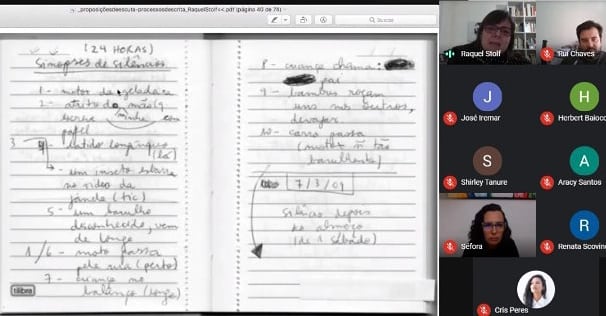 _proposiçõesdeescuta-processosdescrita_RaquelStolf<<.pdf (página 40 de 78)
Buscar
(24 HORAS)
Sinopses de silêncios
1 - motor da geladeira
2 - atrito da mão (q
escreve minha com
papel
3 4 - latido longínquo
(lá)
um inseto esbarra
no vidro da
janela (tic)
5 - um barulho
desconhecido, vem
de longe
1/6 - moto passa
pela rua (perto)
7 - criança no
balanço (longe)
tilibra
8 - criança chama:
pai
9 - bambus roçam
uns nos outros,
devagar
10 - carro passa
(motor ñ tão
barulhento)
7/3/09
silêncio depois
do almoço
(de 1 sábado)
Raquel Stolf
Rui Chaves
J
José Iremar
H
Herbert Baioco
S
Shirley Tanure
A
Aracy Santos
Séfora
R
Renata Scovino
Cris Peres